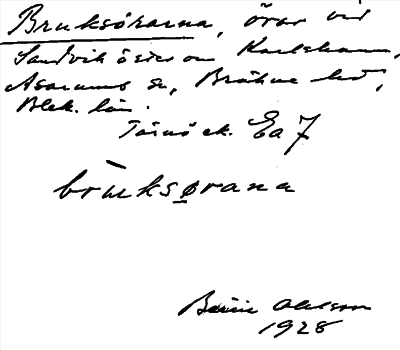 Bruksörarna, örar vid
Sandvik öster om Karlshamn,
Asarums sn, Bräkne hd,
Blek. län.
Tärnö ek. Ea 7
brūksørana
Bertil Ohlson
1928